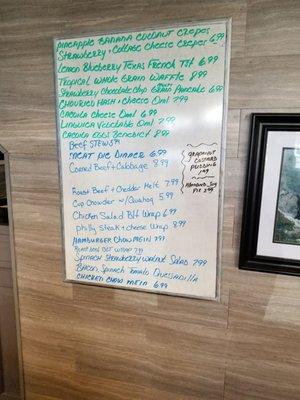 PINEAPPLE BANANA COCONUT CREPES
STRAWBERRY + COTTAGE CHEESE CREPES 6.99
LEMON BLUEBERRY TEXAS FRENCH TST 6.99
TROPICAL WHOLE GRAIN WAFFLE 8.99
STRAWBERRY CHOCOLATE CHIP GRAIN PANCAKE 6.99
CHOURICO HASH + CHEESE OML 7.99
CACOILA CHEESE OML 6.99
LINGUICA VEGETABLE OML 7.99
CACOILA EGGS BENEDICT 8.99
BEEF STEW
MEAT PIE DINNER 6.99
CORNED BEEF + CABBAGE 8.99
GRAPENUT
CUSTARD
PUDDING
1.99
ALMOND JOY
PIE 2.99
ROAST BEEF + CHEDDAR MELT 7.99
CUP CHOWDER W/ QUAHOG 5.99
CHICKEN SALAD BLT WRAP 6.99
PHILLY STEAK + CHEESE WRAP 8.99
HAMBURGER CHOW MEIN 7.99
BLT WRAP 7.99
SPINACH STRAWBERRY WALNUT SALAD 7.99
BACON SPINACH TOMATO QUESADILLA
CHICKEN CHOW MEIN 6.99